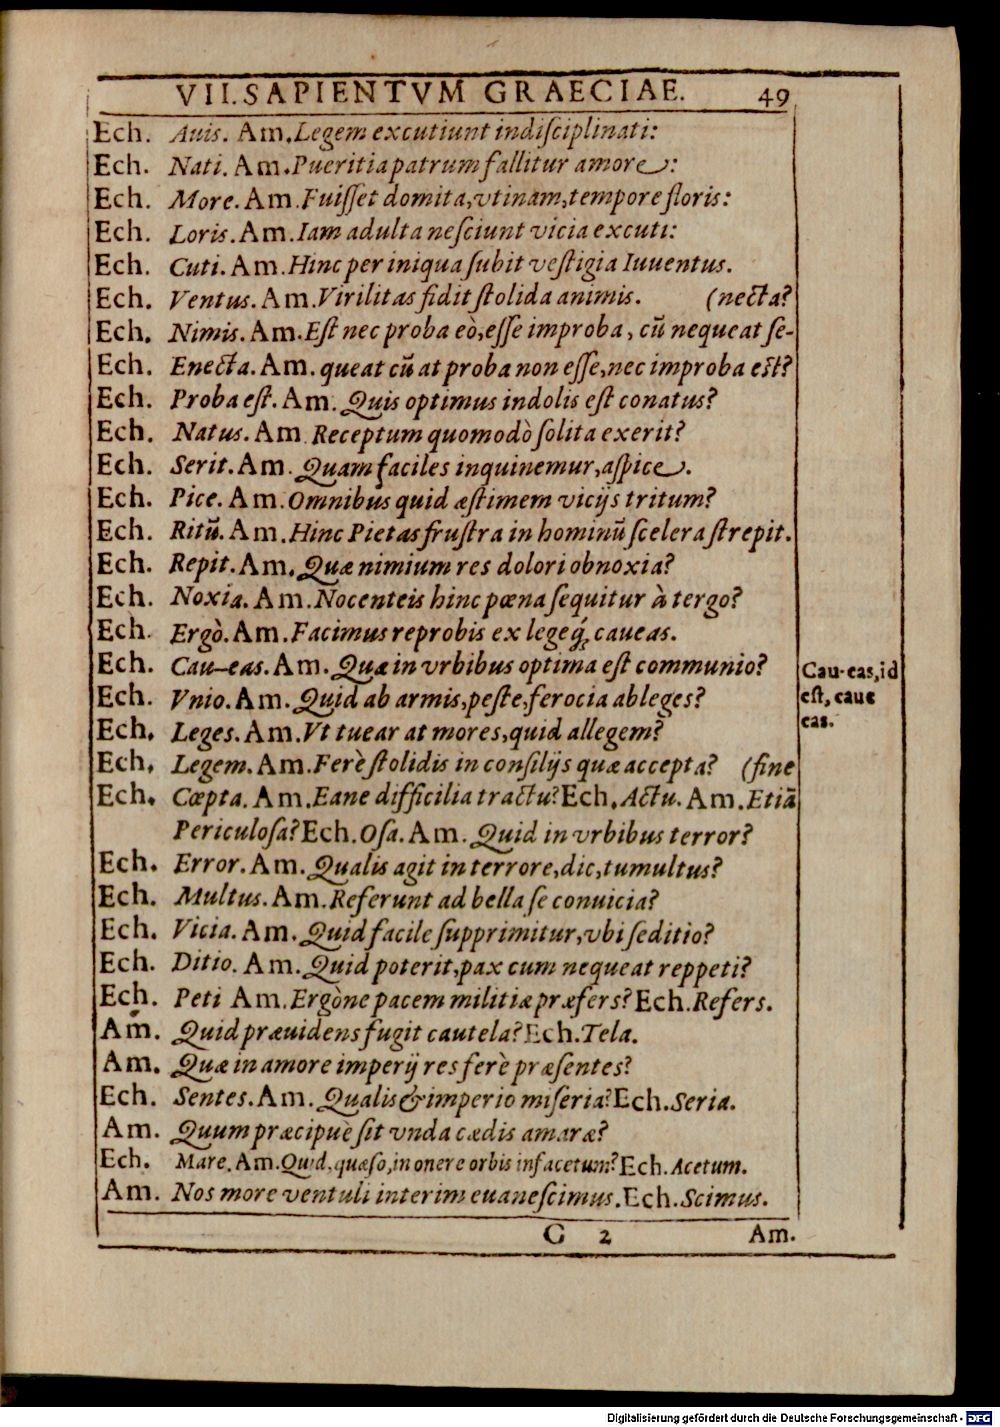 VII. SAPIENTVM GRAECIAE. 49
Ech. Auis. Am. Legem excutiunt indiſciplinati:
Ech. Nati. Am. Pueritia patrum fallitur amore:
Ech. More. Am. Fuiſſet domita, vtinam, tempore floris:
Ech. Loris. Am. Iam adulta neſciunt vicia excuti:
Ech. Cuti. Am. Hinc per iniqua ſubit veſtigia Iuuentus.
Ech. Ventus. Am. Virilitas fidit ſtolida animis. (necta?
Ech. Nimis. Am. Eſt nec proba eò, eſſe improba, cū nequeat ſe-
Ech. Enecta. Am. queat cū at proba non eſſe, nec improba eſt?
Ech. Proba eſt. Am. Quis optimus indolis eſt conatus?
Ech. Natus. Am. Receptum quomodò ſolita exerit?
Ech. Serit. Am. Quam faciles inquinemur, aſpice.
Ech. Pice. Am. Omnibus quid æſtimem vicijs tritum?
Ech. Ritū. Am. Hinc Pietas fruſtra in hominū ſcelera ſtrepit.
Ech. Repit. Am. Quæ nimium res dolori obnoxia?
Ech. Noxia. Am. Nocenteis hinc pœna ſequitur à tergo?
Ech. Ergò. Am. Facimus reprobis ex lege q́; caueas.
Ech. Cau-eas. Am. Quæ in vrbibus optima eſt communio?
Cau-eas, id
eſt, caue
eas.
Ech. Vnio. Am. Quid ab armis, peſte, ferocia ableges?
Ech. Leges. Am. Vt tuear at mores, quid allegem?
Ech. Legem. Am. Ferè ſtolidis in conſilijs quæ accepta? (ſine
Ech. Cœpta. Am. Eane difficilia tractu? Ech. Actu. Am. Etiā
Periculoſa? Ech. Oſa. Am. Quid in vrbibus terror?
Ech. Error. Am. Qualis agit in terrore, dic, tumultus?
Ech. Multus. Am. Referunt ad bella ſe conuicia?
Ech. Vicia. Am. Quid facile ſupprimitur, vbi ſeditio?
Ech. Ditio. Am. Quid poterit, pax cum nequeat reppeti?
Ech. Peti Am. Ergòne pacem militiæ præfers? Ech. Refers.
Am. Quid præuidens fugit cautela? Ech. Tela.
Am. Quæ in amore imperij res ferè præſentes?
Ech. Sentes. Am. Qualis & imperio miſeria? Ech. Seria.
Am. Quum præcipuè ſit vnda cædis amaræ?
Ech. Mare. Am. Quid, quæſo, in onere orbis infacetum? Ech. Acetum.
Am. Nos more ventuli interim euaneſcimus. Ech. Scimus.
G 2 Am.
Digitalisierung gefördert durch die Deutsche Forschungsgemeinschaft - DFG